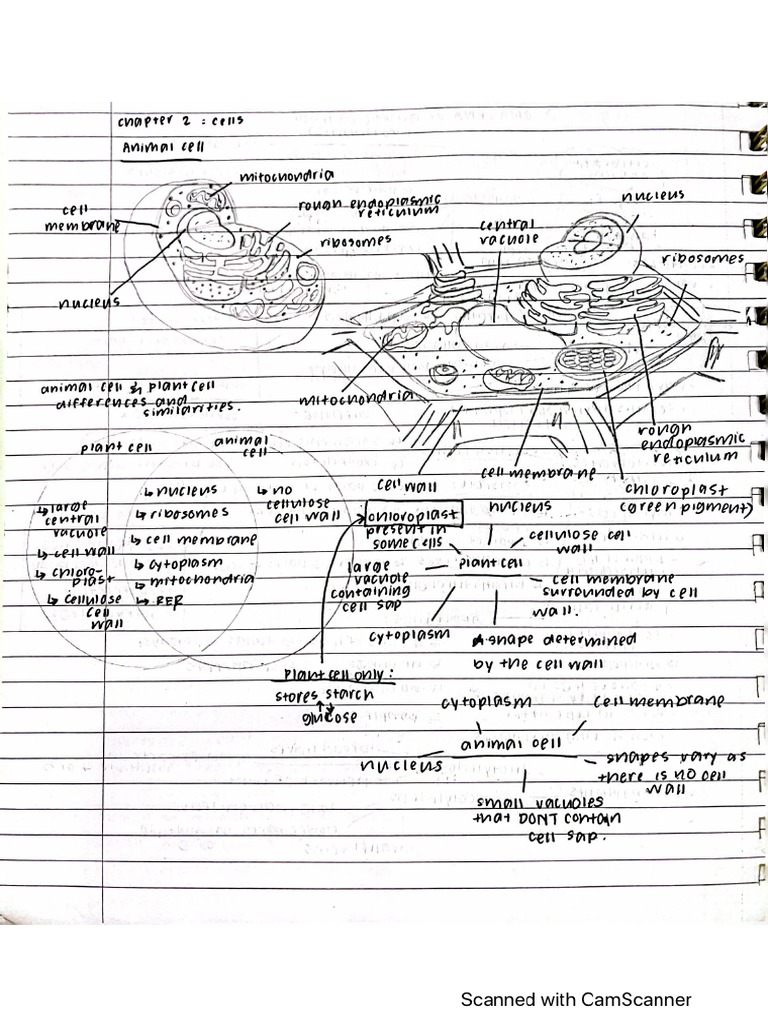 chapter 2 : cells
Animal cell
mitochondria
cell
membrane
rough endoplasmic
reticulum
ribosomes
nucleus
nucleus
central
vacuole
ribosomes
mitochondria
rough
endoplasmic
reticulum
cell wall
cell membrane
chloroplast
(green pigment)
animal cell & plant cell
differences and
similarities.
plant cell
animal
cell
↳ large
central
vacuole
↳ cell wall
↳ chloro-
plast
↳ cellulose
cell
wall
↳ nucleus
↳ ribosomes
↳ cell membrane
↳ cytoplasm
↳ mitochondria
↳ RER
↳ no
cellulose
cell wall
chloroplast
present in
some cells
nucleus
cellulose cell
wall
large
vacuole
containing
cell sap
plant cell
cell membrane
surrounded by cell
wall.
cytoplasm
shape determined
by the cell wall
Plant cell only :
stores starch
glucose
cytoplasm
cell membrane
animal cell
nucleus
shapes vary as
there is no cell
wall
small vacuoles
that DONT contain
cell sap.
Scanned with CamScanner